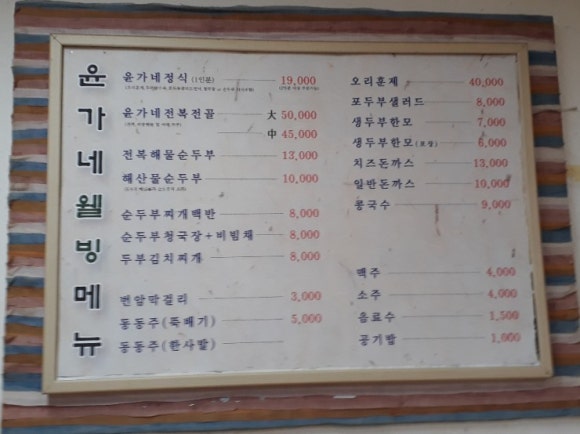 윤가네웰빙메뉴
윤가네정식 (1인분) 19,000
윤가네전복전골 大 50,000
中 45,000
전복해물순두부 13,000
해산물순두부 10,000
순두부찌개백반 8,000
순두부청국장+비빔채 8,000
두부김치찌개 8,000
번암막걸리 3,000
동동주(뚝배기) 5,000
동동주(한사발)
오리훈제 40,000
포두부샐러드 8,000
생두부한모 7,000
생두부한모(포장) 6,000
치즈돈까스 13,000
일반돈까스 10,000
콩국수 9,000
맥주 4,000
소주 4,000
음료수 1,500
공기밥 1,000